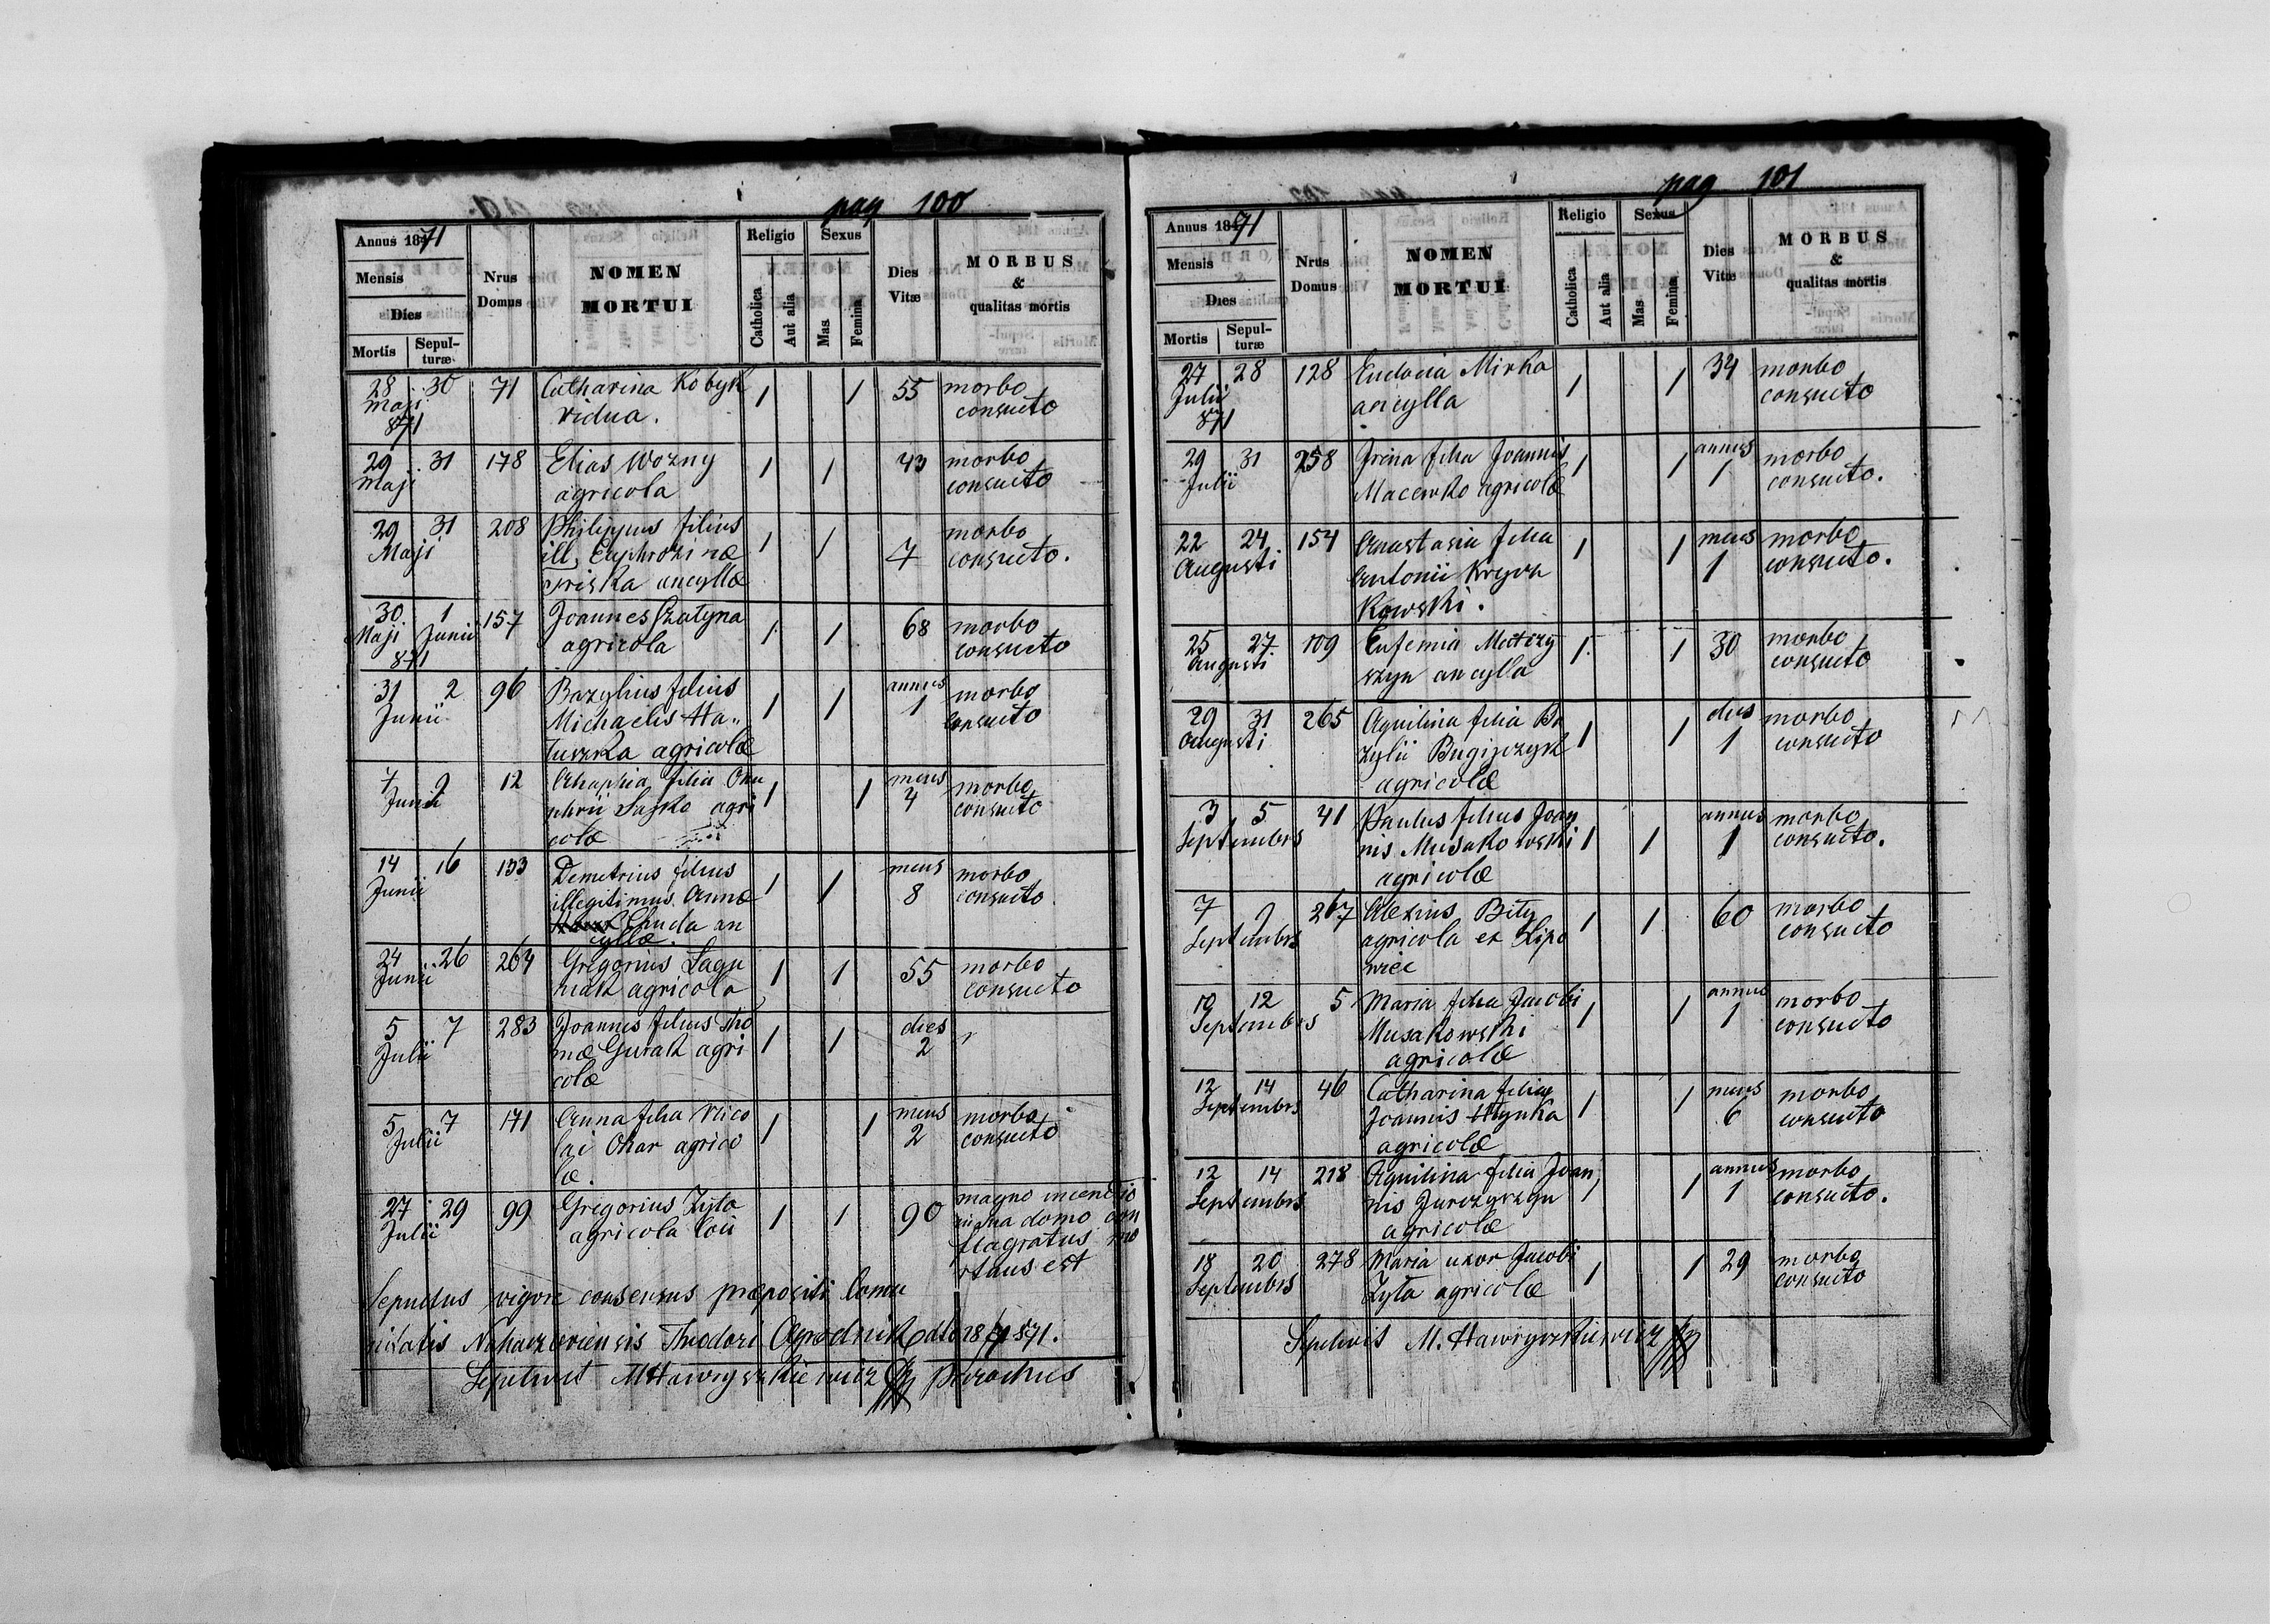 pag 100
Annus 1871
Mensis
Dies
Mortis
Sepul-
turæ
Nrus
Domus
NOMEN
MORTUI
Religio
Catholica
Aut alia
Sexus
Mas
Femina
Dies
Vitæ
MORBUS
&
qualitas mortis
28 30 71 Catharina Kobyk 1 1 55 morbo
Maji vidua. consueto
871
29 31 178 Elias Wozny 1 1 43 morbo
Maji agricola consueto
29 31 208 Philippus filius 1 1 7 morbo
Maji ill. Euphrozinæ consueto.
ancyllæ
30 1 157 Joannes Czatyna 1 1 68 morbo
Maji Junii agricola consueto
871
31 2 96 Bazylius filius 1 1 annus morbo
Junii Michaelis Ha„ 1 consueto
tuszka agricolæ
7 9 12 Ahaphia filia Onu 1 1 mens morbo
Junii phrii Sasko agri 4 consueto
colæ
14 16 133 Demetrius filius 1 1 mens morbo
Junii illegitimus Annæ 8 consueto
Chuda an
cyllæ.
24 26 264 Gregorius Lagu 1 1 55 morbo
Junii niak agricola consueto
5 7 283 Joannes filius Tho 1 1 dies
Julii mæ Gurak agri 2
colæ
5 7 171 Anna filia Nico 1 1 mens morbo
Julii lai Ohar agrico 2 consueto
læ.
27 29 99 Gregorius Zyla 1 1 90 magno incendio
Julii agricola domo con
flagratus mo
rtuus est
Sepultus vigore consensus præpositi Comu
nitatis Nahaczoviensis Theodori Agrodnik dto 28/7 871.
Sepelivit M Hawryszkiewicz parochus
pag 101
Annus 1871
Mensis
Dies
Mortis
Sepul-
turæ
Nrus
Domus
NOMEN
MORTUI
Religio
Catholica
Aut alia
Sexus
Mas
Femina
Dies
Vitæ
MORBUS
&
qualitas mortis
27 28 128 Eudocia Mirka 1 1 34 morbo
Julii ancylla consueto
871
29 31 258 Irena filia Joannis 1 1 annus morbo
Julii Macewko agricolæ 1 consueto.
22 24 154 Anastasia filia 1 1 mens morbo
Augusti Antonii Krywa 1 consueto.
kowski.
25 27 109 Eufemia Matczy 1 1 30 morbo
Augusti szyn ancylla consueto
29 31 265 Aquilina filia Ba 1 1 dies morbo
Augusti zylii Bugijczyk 1 consueto
agricolæ
3 5 41 Paulus filius Joan 1 1 annus morbo
Septembris nis Musakowski 1 consueto.
agricolæ
7 9 267 Alexius Bity 1 1 60 morbo
Septembris agricola ex Lipo consueto
wiec
10 12 5 Maria filia Jacobi 1 1 annus morbo
Septembris Musakowski 1 consueto
agricolæ
12 14 46 Catharina filia 1 1 mens morbo
Septembris Joannis Hynka 6 consueto
agricolæ
12 14 218 Aquilina filia Joan 1 1 annus morbo
Septembris nis Jurczyszyn 1 consueto.
agricolæ
18 20 278 Maria uxor Jacobi 1 1 29 morbo
Septembris Zyla agricolæ consueto
Sepelivit M. Hawryszkiewicz